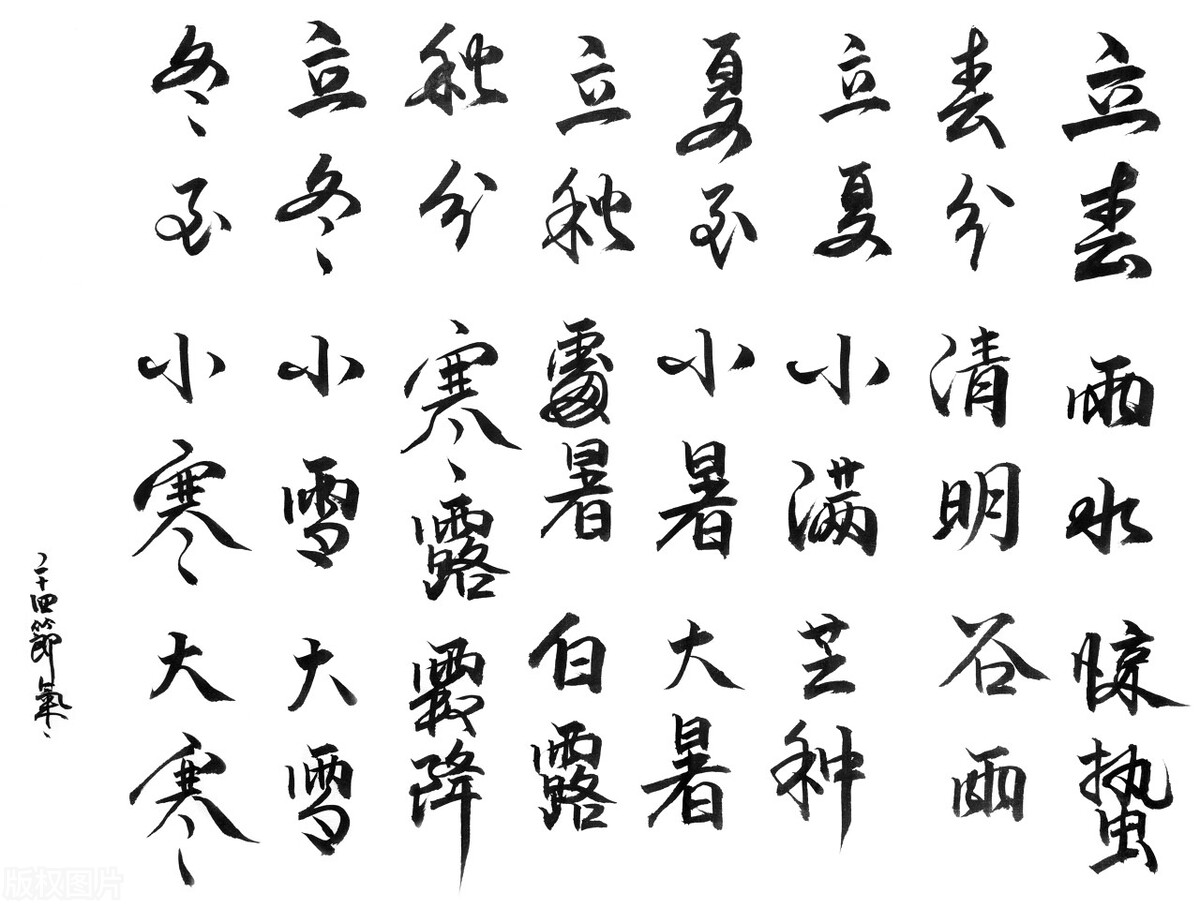 立春 雨水 惊蛰
春分 清明 谷雨
立夏 小满 芒种
夏至 小暑 大暑
立秋 處暑 白露
秋分 寒露 霜降
立冬 小雪 大雪
冬至 小寒 大寒
二十四節氣
版权图片